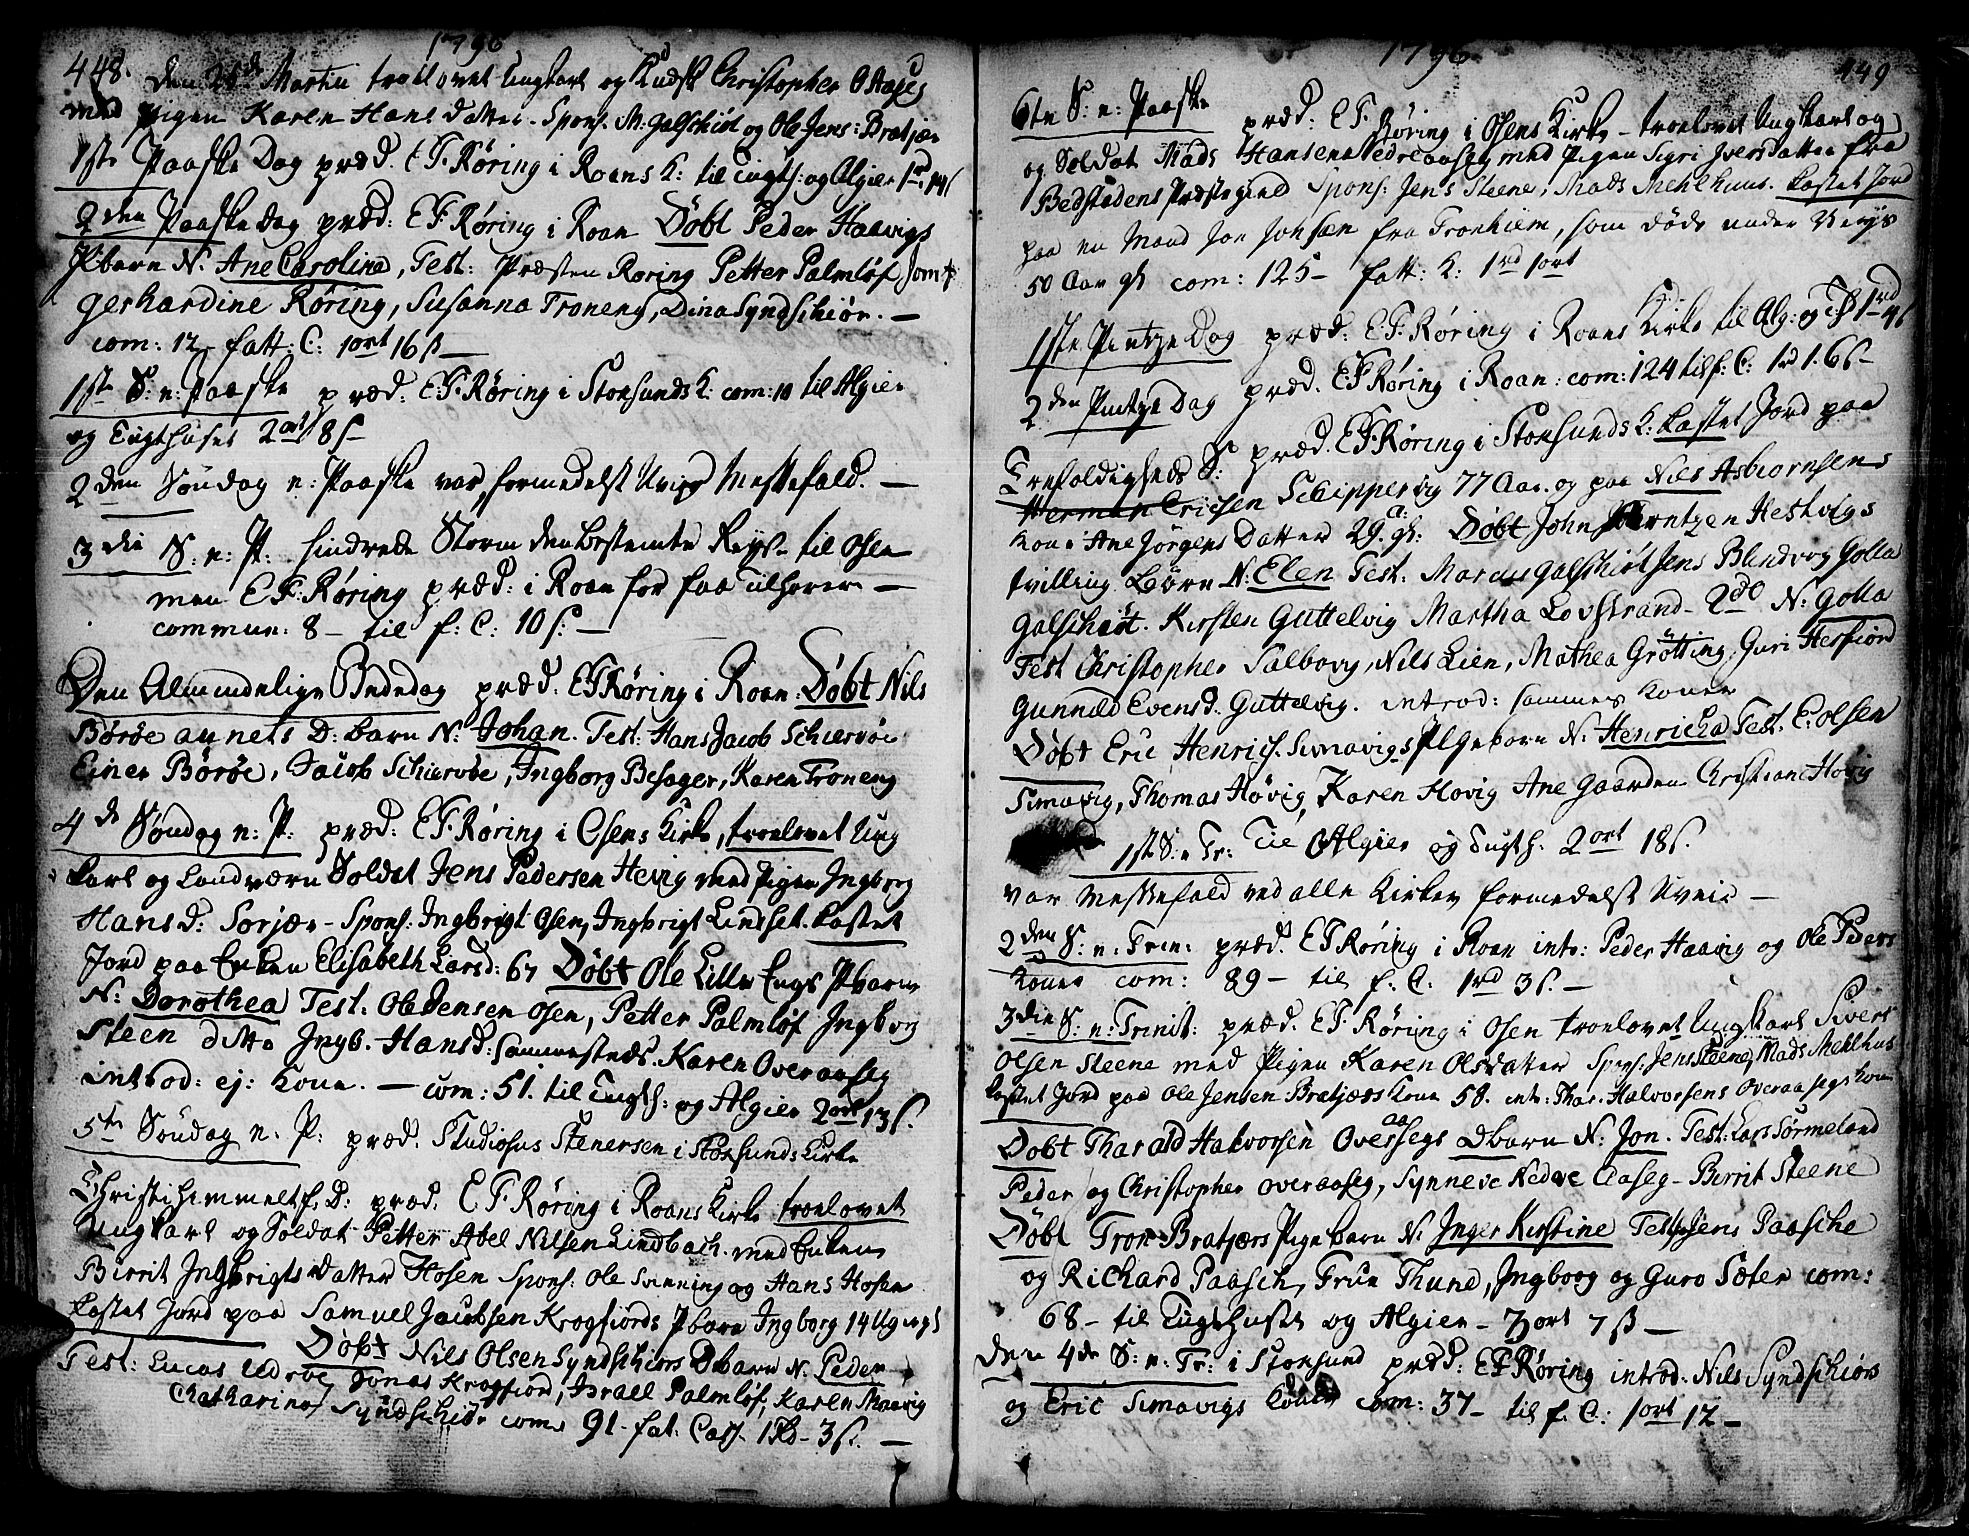 1796
448.
Den 25de Martii troelovet Ungkarl og Kudsk Christopher Aases
med Pigen Karen Hansdatter. Spons. M. Galschiøt og Ole Jens: Bratjær
1ste Paaske Dag præd. E. F. Røring i Roans K: til Tugth: og Algier 1rd 14s
2den Paaske Dag præd: E. F. Røring i Roan Døbt Peder Haavigs
Pbarn N. Ane Carolina, Test: Præsten Roring Petter Palmløf Jomf
Gerhardine Røring, Susanna Troneng, Dina Syndschiør. —
com: 12 fatt: C: 1ort 16ß —
1ste S: n: Paaske præd. E F. Røring i Stoksunds K: com: 10 til Algier
og Tugthuset 2ort 8s —
2den Søndag n: Paaske var formedelst Uvejr Messefald. —
3die S: n: P: hindrede Storm den bestemte Reyse til Osen
men E F. Røring præd: i Roan for faa Tilhører —
commun: 8 — til f: C: 10s: —
Den Almindelige Bededag præd. E F Røring i Roan. Døbt Nils
Børøe aunets D: barn N: Johan. Test: Hans Jacob Schiervøe
Einer Børøe, Jacob Schiervøe, Ingborg Besager, Karen Troneng
4de Søndag n: P: præd: E F. Røring i Osens Kirke, troelovet Ung
karl og Landværn Soldat Jens Pedersen Hevig med Pigen Ingborg
Hansd: Sorjær — Spons: Ingbrigt Osen, Ingbrigt Lindset. kastet
Jord paa Enken Elisabeth Larsd: 67 Døbt Ole Lille Engs Pbarn
N: Dorothea Test: Ole Jensen Osen, Petter Palmløf Ingborg
Steen ditto Ingb. Hansd: Sammesteds. Karen Overaaseg
introd: ej: Kone. — com: 51. til Tugth: og Algier 2ort 13s.
5te Søndag n: P: præd. Studiosus Stenersen i Stoksunds Kirke
Christi Himmelf. D: præd. E F. Røring i Roans Kirke troelovet
Ungkarl og Soldat Petter Abel Nilsen Lindbach. med Enken
Birrit Ingbrigtsdatter Hosen Spons: Ole Svenning og Hans Hosen
kastet Jord paa Samuel Jacobsen Krogfiords Pbarn Ingborg 14 Uger gl
Døbt Nils Olsen Syndschiørs Dbarn N. Peder
Test: Lucas Jonas Krogfiord, Israel Palmløf, Karen Haavig
Chatharina Syndschiør com: 91 — fat. Cass. 1rd — 3s. —

1796
449
6te S: n: Paaske præd: E F. Røring i Osens Kirke — troelovet Ungkarl og
og Soldat Mads Hansen Nedreaaseg med Pigen Sigri Iversdatter fra
Bedstadens Præstegield Spons: Jens Steene, Mads Mehlhuus. kastet Jord
paa en Mand Jon Jonsen fra Tronhiem, som døde under Veigs
50 Aar gl com: 125 — fatt: K: 1rd 1ort
1ste Pintze Dag præd: E. F: Røring i Roans Kirke til Alg: og T: 1rd 4s
2den Pintze Dag præd. E F Røring i Roan: com: 124 til f: C: 1rd 1. 6s —
Trefoldigheds S: præd. E F. Røring i Stoksunds K: kastet Jord paa
Herman Ericsen Schippervig 77 Aar. og paa Nils Asbiørnsens
Kone Ane Jørgens Datter 29. a: gl: Døbt John Arntzen Hestvigs
tvilling Børn N: Elen Test: Marcus Galschiøt Jens Blindvog Golla
Galschiøt. Kirsten Guttelvig Martha Lovstrand — 2do N: Golla
Test Christopher Salbovg, Nils Lien, Mathea Grøtting, Guri Hesfiord
Gunnild Evensd. Guttelvig. introd: sammes Koner
Døbt Eric Henrich. Simavigs Pigebarn N. Henricha Test. E: Olsen
Simavig, Thomas Høvig, Karen Hovig Ane Gaarden Christiane Hovig
1ste S: n Tr: Til Algier og Tugth. 2ort 18s.
var Messefald ved alle Kirker formedelst Uveir —
2den S: n: Trin: præd. E F Røring i Roan intr: Peder Haavig og Ole Peders
Koner com: 89 — til f. C. 1rd 3s. —
3die S: n: Trinit: præd. E F. Røring i Osen troelovet Ungkarl Sivert
Olsen Steene med Pigen Karen Olsdatter Spons: Jens Steene, Mads Mehlhus
kastet Jord paa Ole Jensen Bratjærs Kone 58. intr: Thar. Halvorsens Overaasegs Kone
Døbt Tharald Halvorsen Overaasegs Dbarn N: Jon. Test: Lars Sørmeland
Peder og Christopher Overaaseg, Synneve Nedre Aaseg — Berrit Steene
Døbt Tron Bratjærs Pigebarn N. Inger Kirstine Test: Jens Paasche
og Richard Paasch, Frue Thune, Ingborg og Guro Sæter com:
68 — til Tugthuset og Algier — 3ort 7ß —
Den 4de S: n: Tr: i Stoksund præd: E F Røring introd: Nils Syndschiørs
og Eric Simavigs Koner com: 37 — til f. C: 1ort 12 —